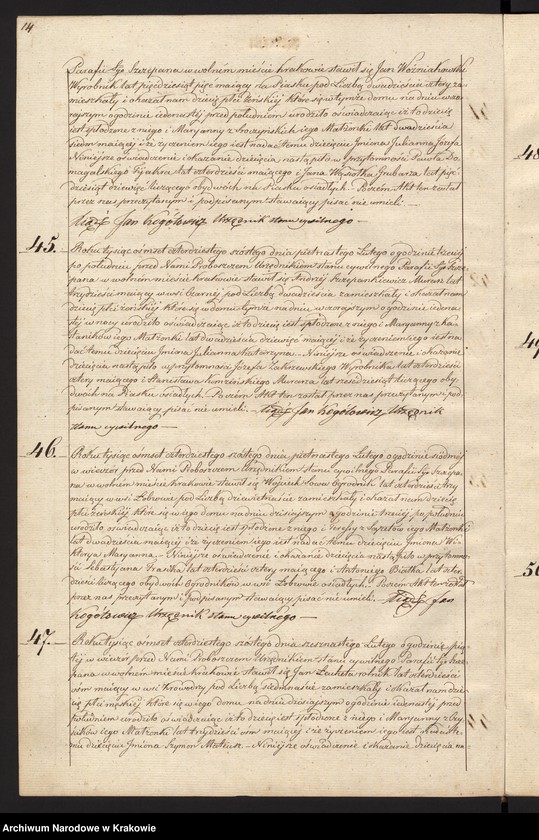 14
Parafii Sgo Szczepana w wolnem mieście Krakowie stawił się Jan Woźniakowski
Wyrobnik lat pięćdziesiąt pięć maiący na Piasku pod Liczbą dwadzieścia cztery za-
mieszkały i okazał nam dziecię płci żeńskiej które się w tymże domu na dniu wczo-
rajszym o godzinie iedenastej przed południem urodziło oświadczaiąc iż to dziecię
iest spłodzone z niego i Maryanny z iego Małżonki lat dwadzieścia
siedm maiącej i że życzeniem iego iest nadać temu dziecięciu Imiona Julianna Józefa
Niniejsze oświadczenie i okazanie dziecięcia nastąpiło w przytomności Pawła Do-
magalskiego Fijakra lat czterdzieści maiącego i Jana Grabarza lat pięć-
dziesiąt dziewięć liczącego obydwóch na Piasku osiadłych. Poczem Akt ten został
przez nas przeczytanym i podpisanym stawaiący pisać nie umieli.—
Xiądz Jan Rogótowicz Urzędnik stanu cywilnego —
45. Roku tysiąc ośmset czterdziestego szóstego dnia piętnastego Lutego o godzinie trzeciej
po południu przed Nami Proboszczem Urzędnikiem stanu cywilnego Parafii Sgo Szcze-
pana w wolnem mieście Krakowie stawił się Andrzej Szczepankiewicz Murarz lat
trzydzieści maiący w wsi Czarnej pod Liczbą dwadzieścia zamieszkały i okazał nam
dziecię płci żeńskiej które się w domu tymże na dniu wczorajszym o godzinie iedenas-
tej w nocy urodziło oświadczaiąc iż to dziecię iest spłodzone z niego i Maryanny z Ka-
sianików iego Małżonki lat dwadzieścia dziewięć maiącej i że życzeniem iego iest na-
dać temu dziecięciu Imiona Julianna Katarzyna.— Niniejsze oświadczenie i okazanie
dziecięcia nastąpiło w przytomności Józefa Zakrzewskiego Wyrobnika lat czterdzieści
cztery maiącego i Stanisława Murarza lat sześćdziesiąt liczącego oby-
dwóch na Piasku osiadłych. Poczem Akt ten został przez nas przeczytanym i pod-
pisanym stawaiący pisać nie umieli.— Xiądz Jan Rogótowicz Urzędnik
stanu cywilnego —
46. Roku tysiąc ośmset czterdziestego szóstego dnia piętnastego Lutego o godzinie siódmej
w wieczór przed Nami Proboszczem Urzędnikiem stanu cywilnego Parafii Sgo Szczepa-
na w wolnem mieście Krakowie stawił się Wojciech Sowa Ogrodnik lat czterdzieści trzy
maiący w wsi Łobzowie pod Liczbą dziewiętnaście zamieszkały i okazał nam dziecię
płci żeńskiej które się w iego domu na dniu dzisiejszym o godzinie trzeciej po południu
urodziło oświadczaiąc iż to dziecię iest spłodzone z niego i iego Małżonki
lat dwadzieścia maiącej i że życzeniem iego iest nadać temu dziecięciu Imiona Wi-
ktorya Maryanna.— Niniejsze oświadczenie i okazanie dziecięcia nastąpiło w przytomno-
ści Sebastyana Ptasika lat czterdzieści cztery maiącego i Antoniego Białka lat czter-
dzieści liczącego obydwóch Ogrodników w wsi Łobzowie osiadłych. Poczem Akt ten został
przez nas przeczytanym i podpisanym stawaiący pisać nie umieli.— Xiądz Jan
Rogótowicz Urzędnik stanu cywilnego —
47. Roku tysiąc ośmset czterdziestego szóstego dnia szesnastego Lutego o godzinie pią-
tej w wieczór przed Nami Proboszczem Urzędnikiem stanu cywilnego Parafii Sgo Szcze-
pana w wolnem mieście Krakowie stawił się Jan rolnik lat czterdzieści
ośm maiący w wsi Krowodrzy pod Liczbą siedmnaście zamieszkały i okazał nam dzie-
cię płci męskiej które się w iego domu na dniu dzisiejszym o godzinie iedenastej przed
południem urodziło oświadczaiąc iż to dziecię iest spłodzone z niego i Maryanny z
iego Małżonki lat trzydzieści ośm maiącej i że życzeniem iego iest nadać te-
mu dziecięciu Imiona Szymon Mateusz.— Niniejsze oświadczenie i okazanie dziecięcia na-
48
49
50
Archiwum Narodowe w Krakowie